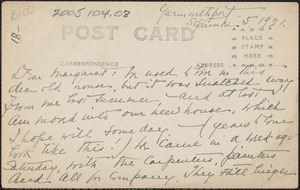 B100
2005.104.03
18-
Yarmouthport
September 5 1921.
POST CARD
PLACE
STAMP
HERE
CORRESPONDENCE
ADDRESS
Dear Margaret: We used to live in this
dear old house, but it was snatched away
from me last Summer, and at last
am moved into our new house, which
I hope will some day (years to come
look like this! We came in a week ago
Saturday, with the Carpenters, painters
and all for company. They still linger